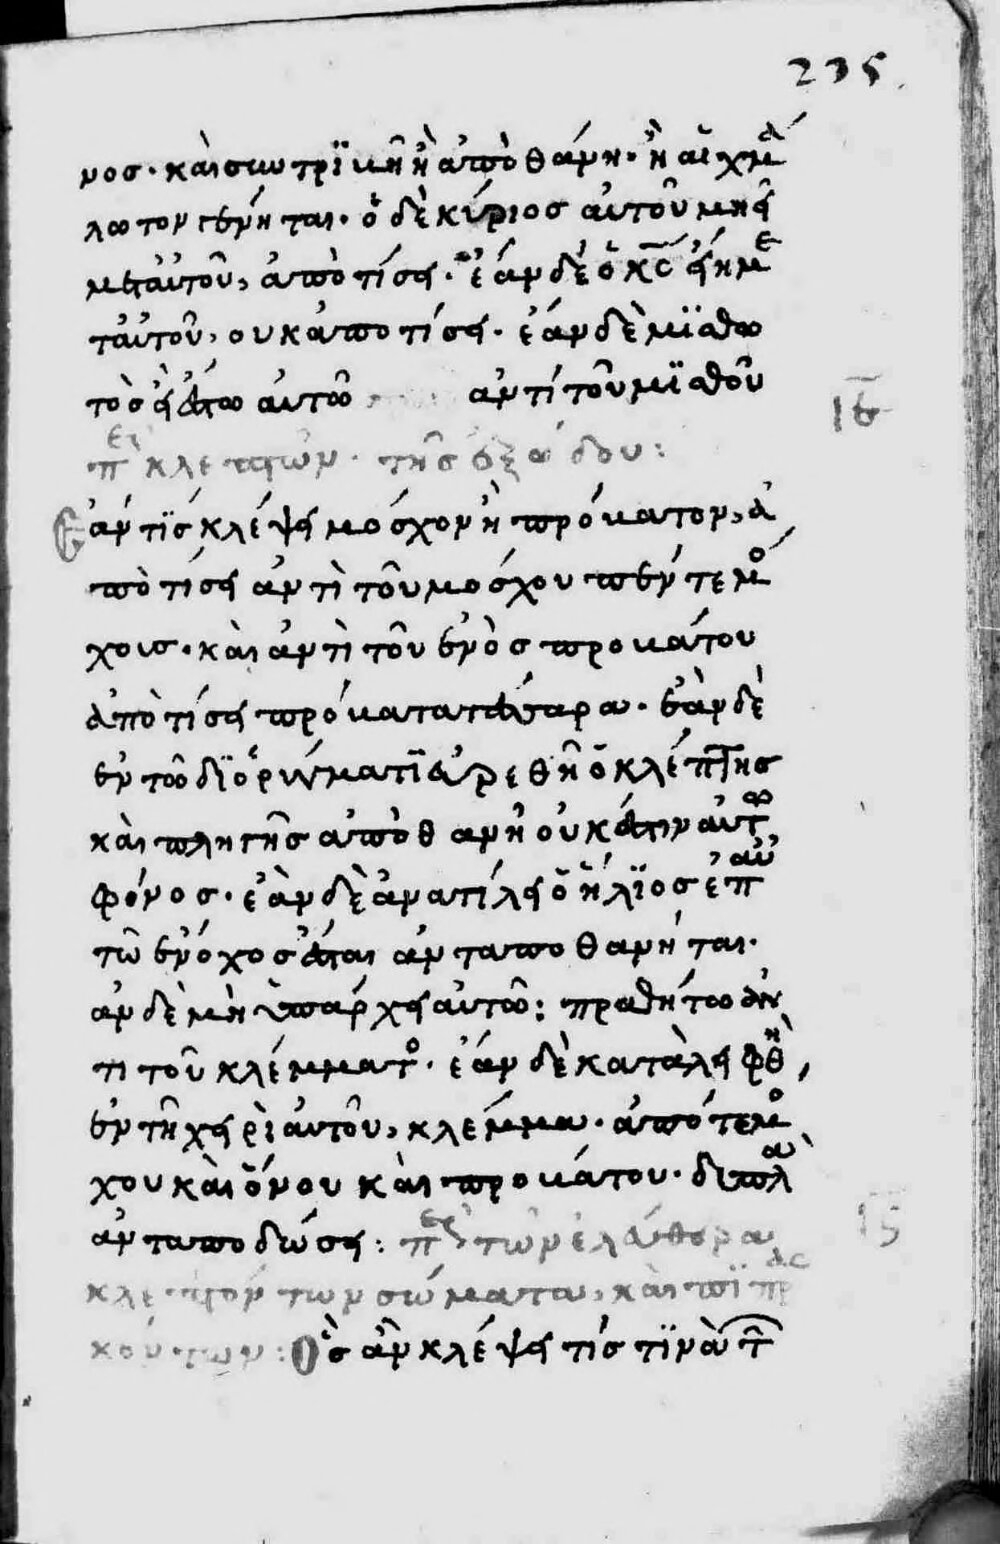 235
νος· καὶ συντριβῆ ἢ ἀποθάνη· ἢ αἰχμα
λωτον γένηται· ὁ δὲ κύριος αὐτοῦ μὴ ἦ
μετ αὐτοῦ, ἀποτίσει· ἐάν δὲ ὁ κς εἴη με
τ αὐτοῦ, ουκ ἀποτίσει· ἐάν δὲ μϊσθω
τὸς ἔσται αὐτῶ ἀντί τοῦ μϊσθοῦ
ιε
περὶ κλεπτῶν· τῆς ἐξόδου:
Εάν τϊς κλέψει μόσχον ἢ πρόβατον, ἀ
ποτίσει ἀντὶ τοῦ μοσχου πέντε μό
χοις· καὶ ἀντὶ τοῦ ἑνὸς προβάτου
ἀποτίσει πρόβατα τέσσαρα· ἐὰν δὲ
ἐν τῶ διορύγματϊ εὑρεθῆ ὁ κλέπτης
καὶ πληγῆς ἀποθανῆ οὐκ ἔστιν αὐτῶ
φόνος· ἐὰν δὲ ἀνατίλει ὁ ἥλϊος ἐπ αὐ
τῶ ἐνόχος ἔσται ἀνταποθανήται·
ἀν δὲ μὴ ὑπάρχει αὐτῶ: πραθήτω ἀν
τι τοῦ κλέμματος· ἐάν δὲ καταλειφθῆ,
ἐν τῆ χειρὶ αὐτοῦ, κλέμμα· ἀπό τε μό
χου καὶ ὄνου καὶ προβάτου· διπλὰ
ἀνταποδώσει: περὶ τῶν ἐλεύθερα
ις
κλεπτόντων σώματα, καὶ πϊπρας
κόντων: Ὃς ἂν κλέψει τίς τϊνὰ τῶν